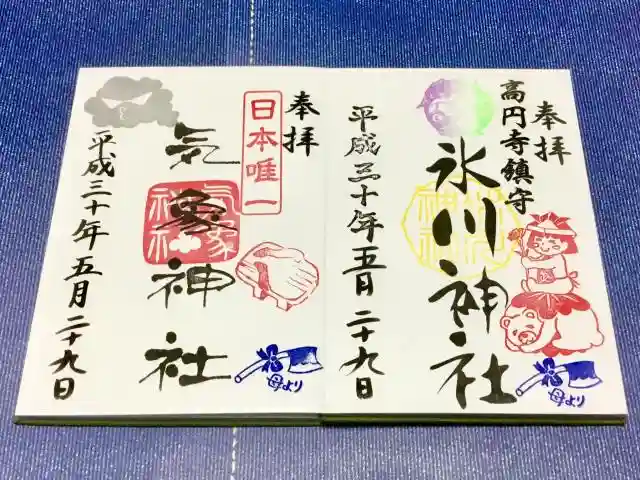 奉拝
高円寺鎮守
氷川神社
平成三十年五月二十九日
母より
奉拝
日本唯一
気象神社
気象神社
平成三十年五月二十九日
母より